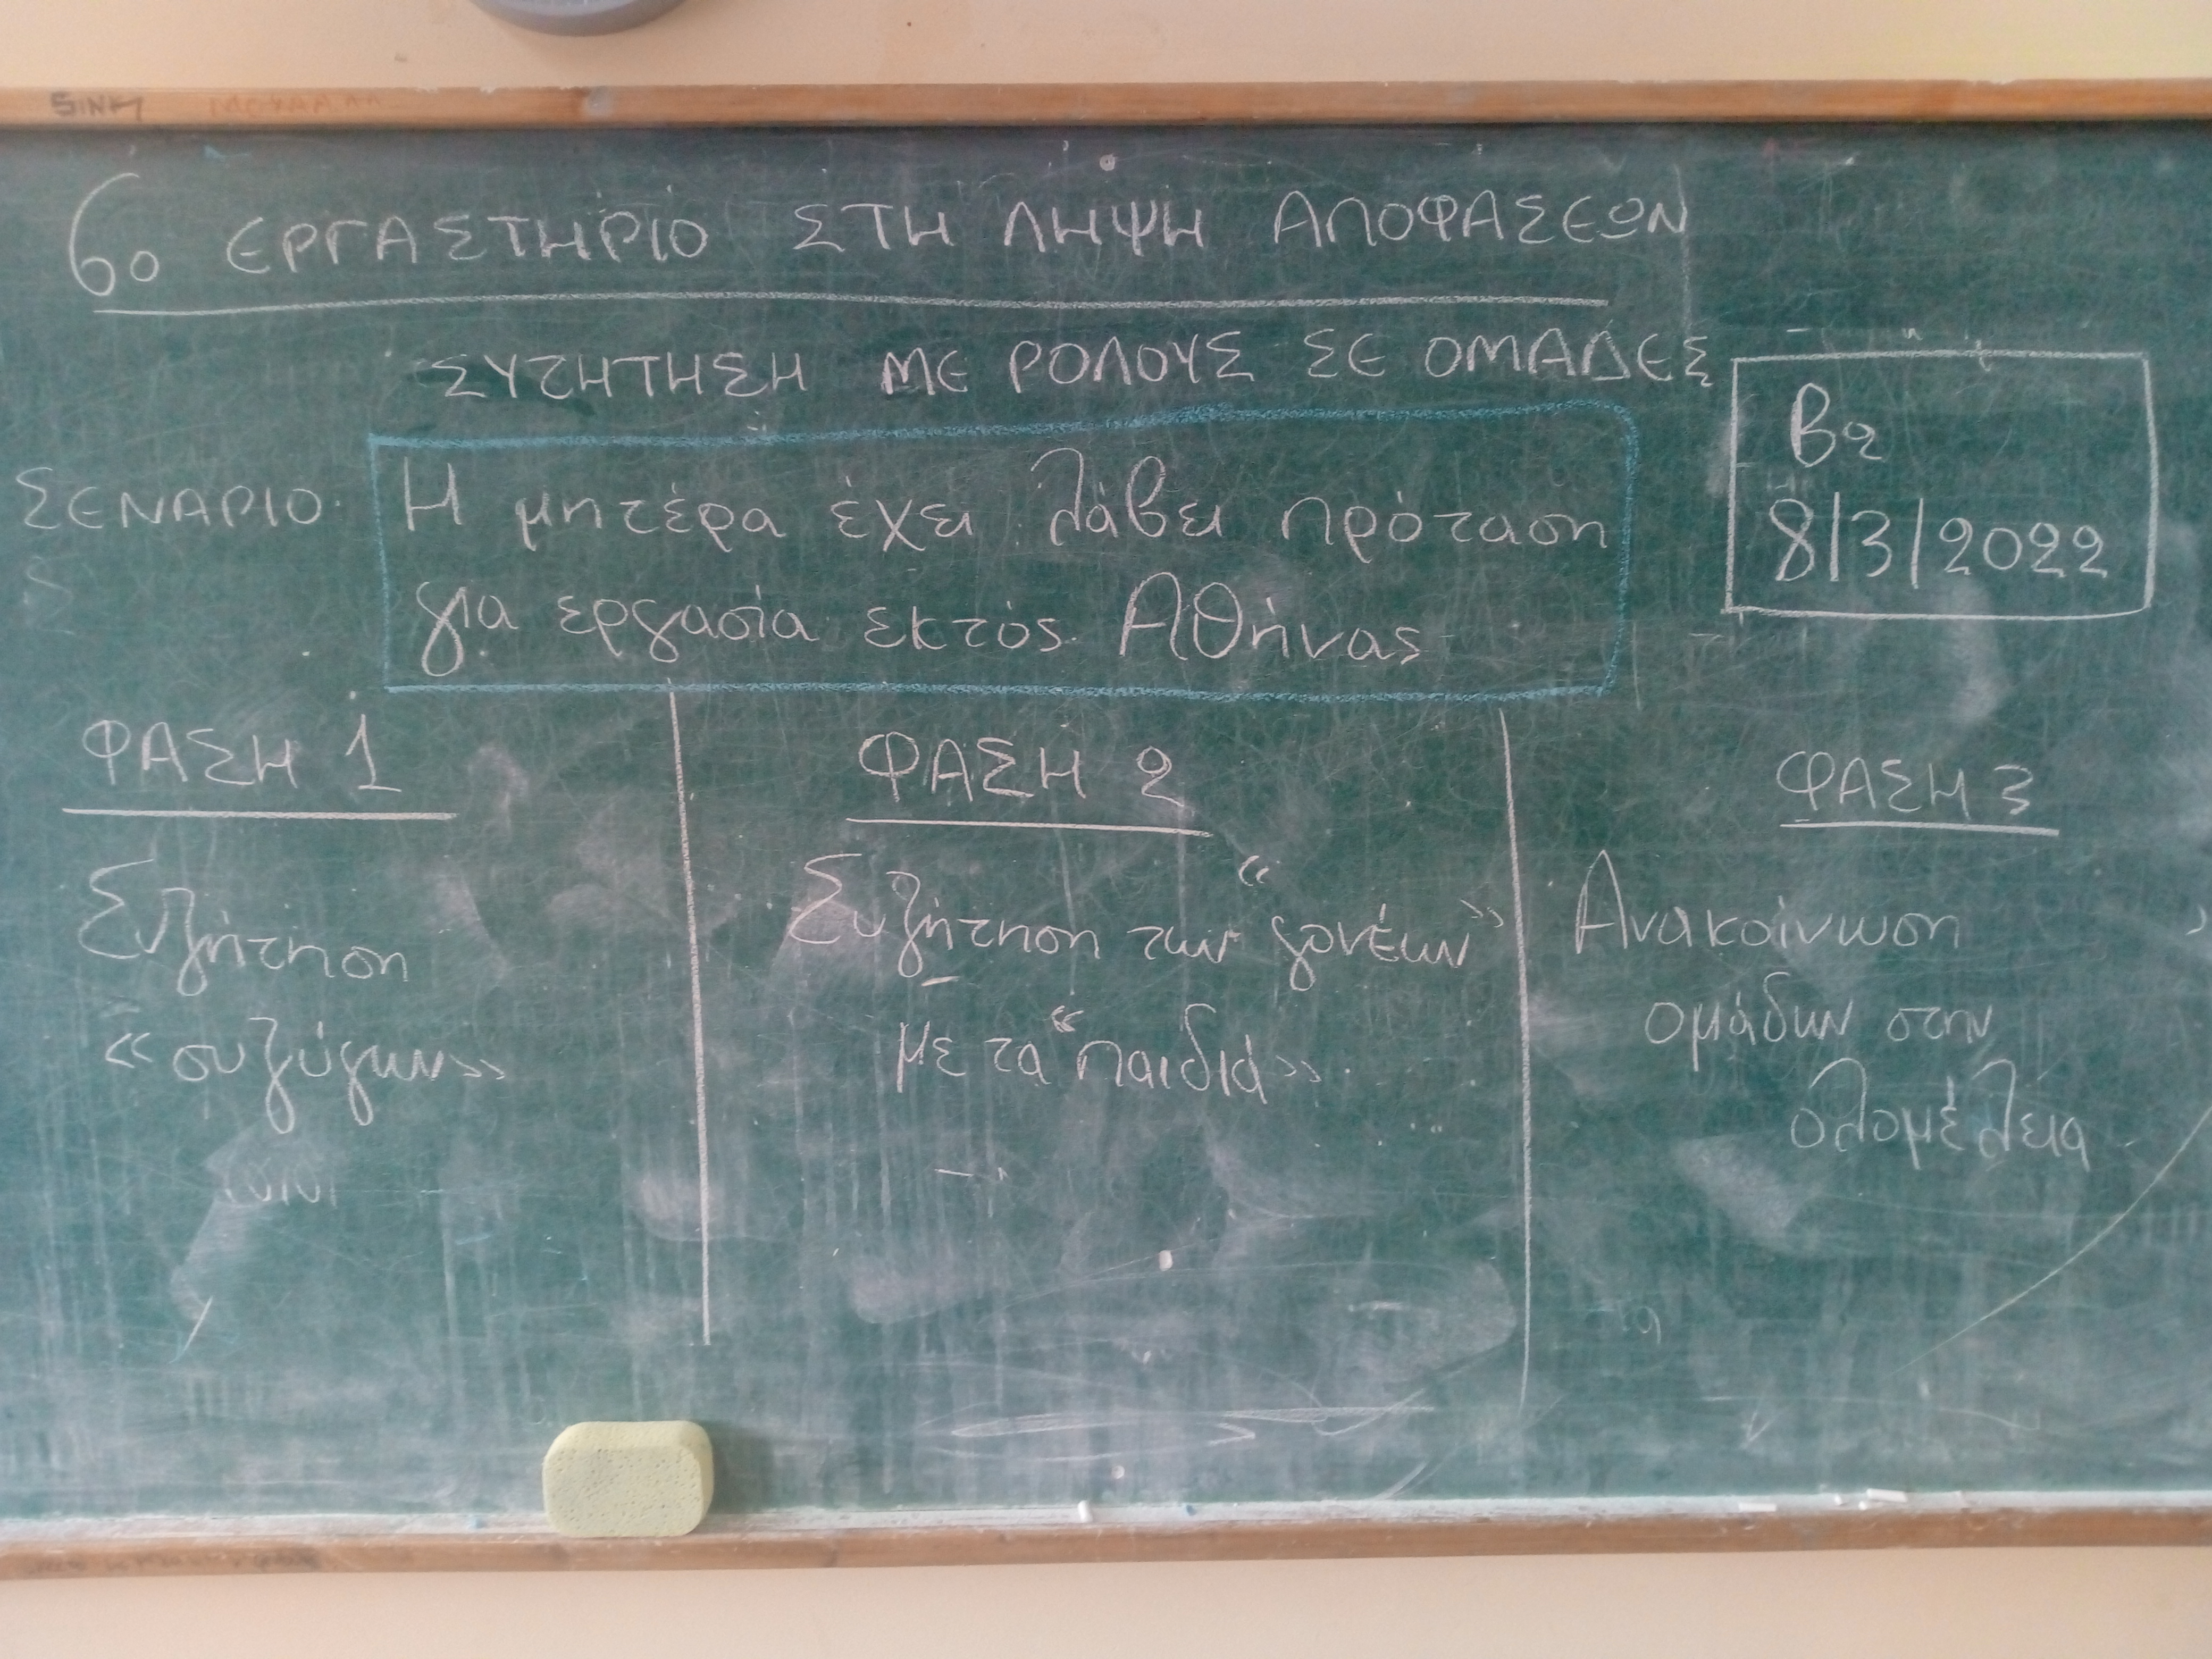 6ο ΕΡΓΑΣΤΗΡΙΟ ΣΤΗ ΛΗΨΗ ΑΠΟΦΑΣΕΩΝ
ΣΥΖΗΤΗΣΗ ΜΕ ΡΟΛΟΥΣ ΣΕ ΟΜΑΔΕΣ
Β2
8/3/2022
ΣΕΝΑΡΙΟ
Η μητέρα έχει λάβει πρόταση
για εργασία εκτός Αθήνας
ΦΑΣΗ 1
Συζήτηση
«συζύγων»
ΦΑΣΗ 2
Συζήτηση των «γονέων»
με τα «παιδιά»
ΦΑΣΗ 3
Ανακοίνωση
ομάδων στην
ολομέλεια